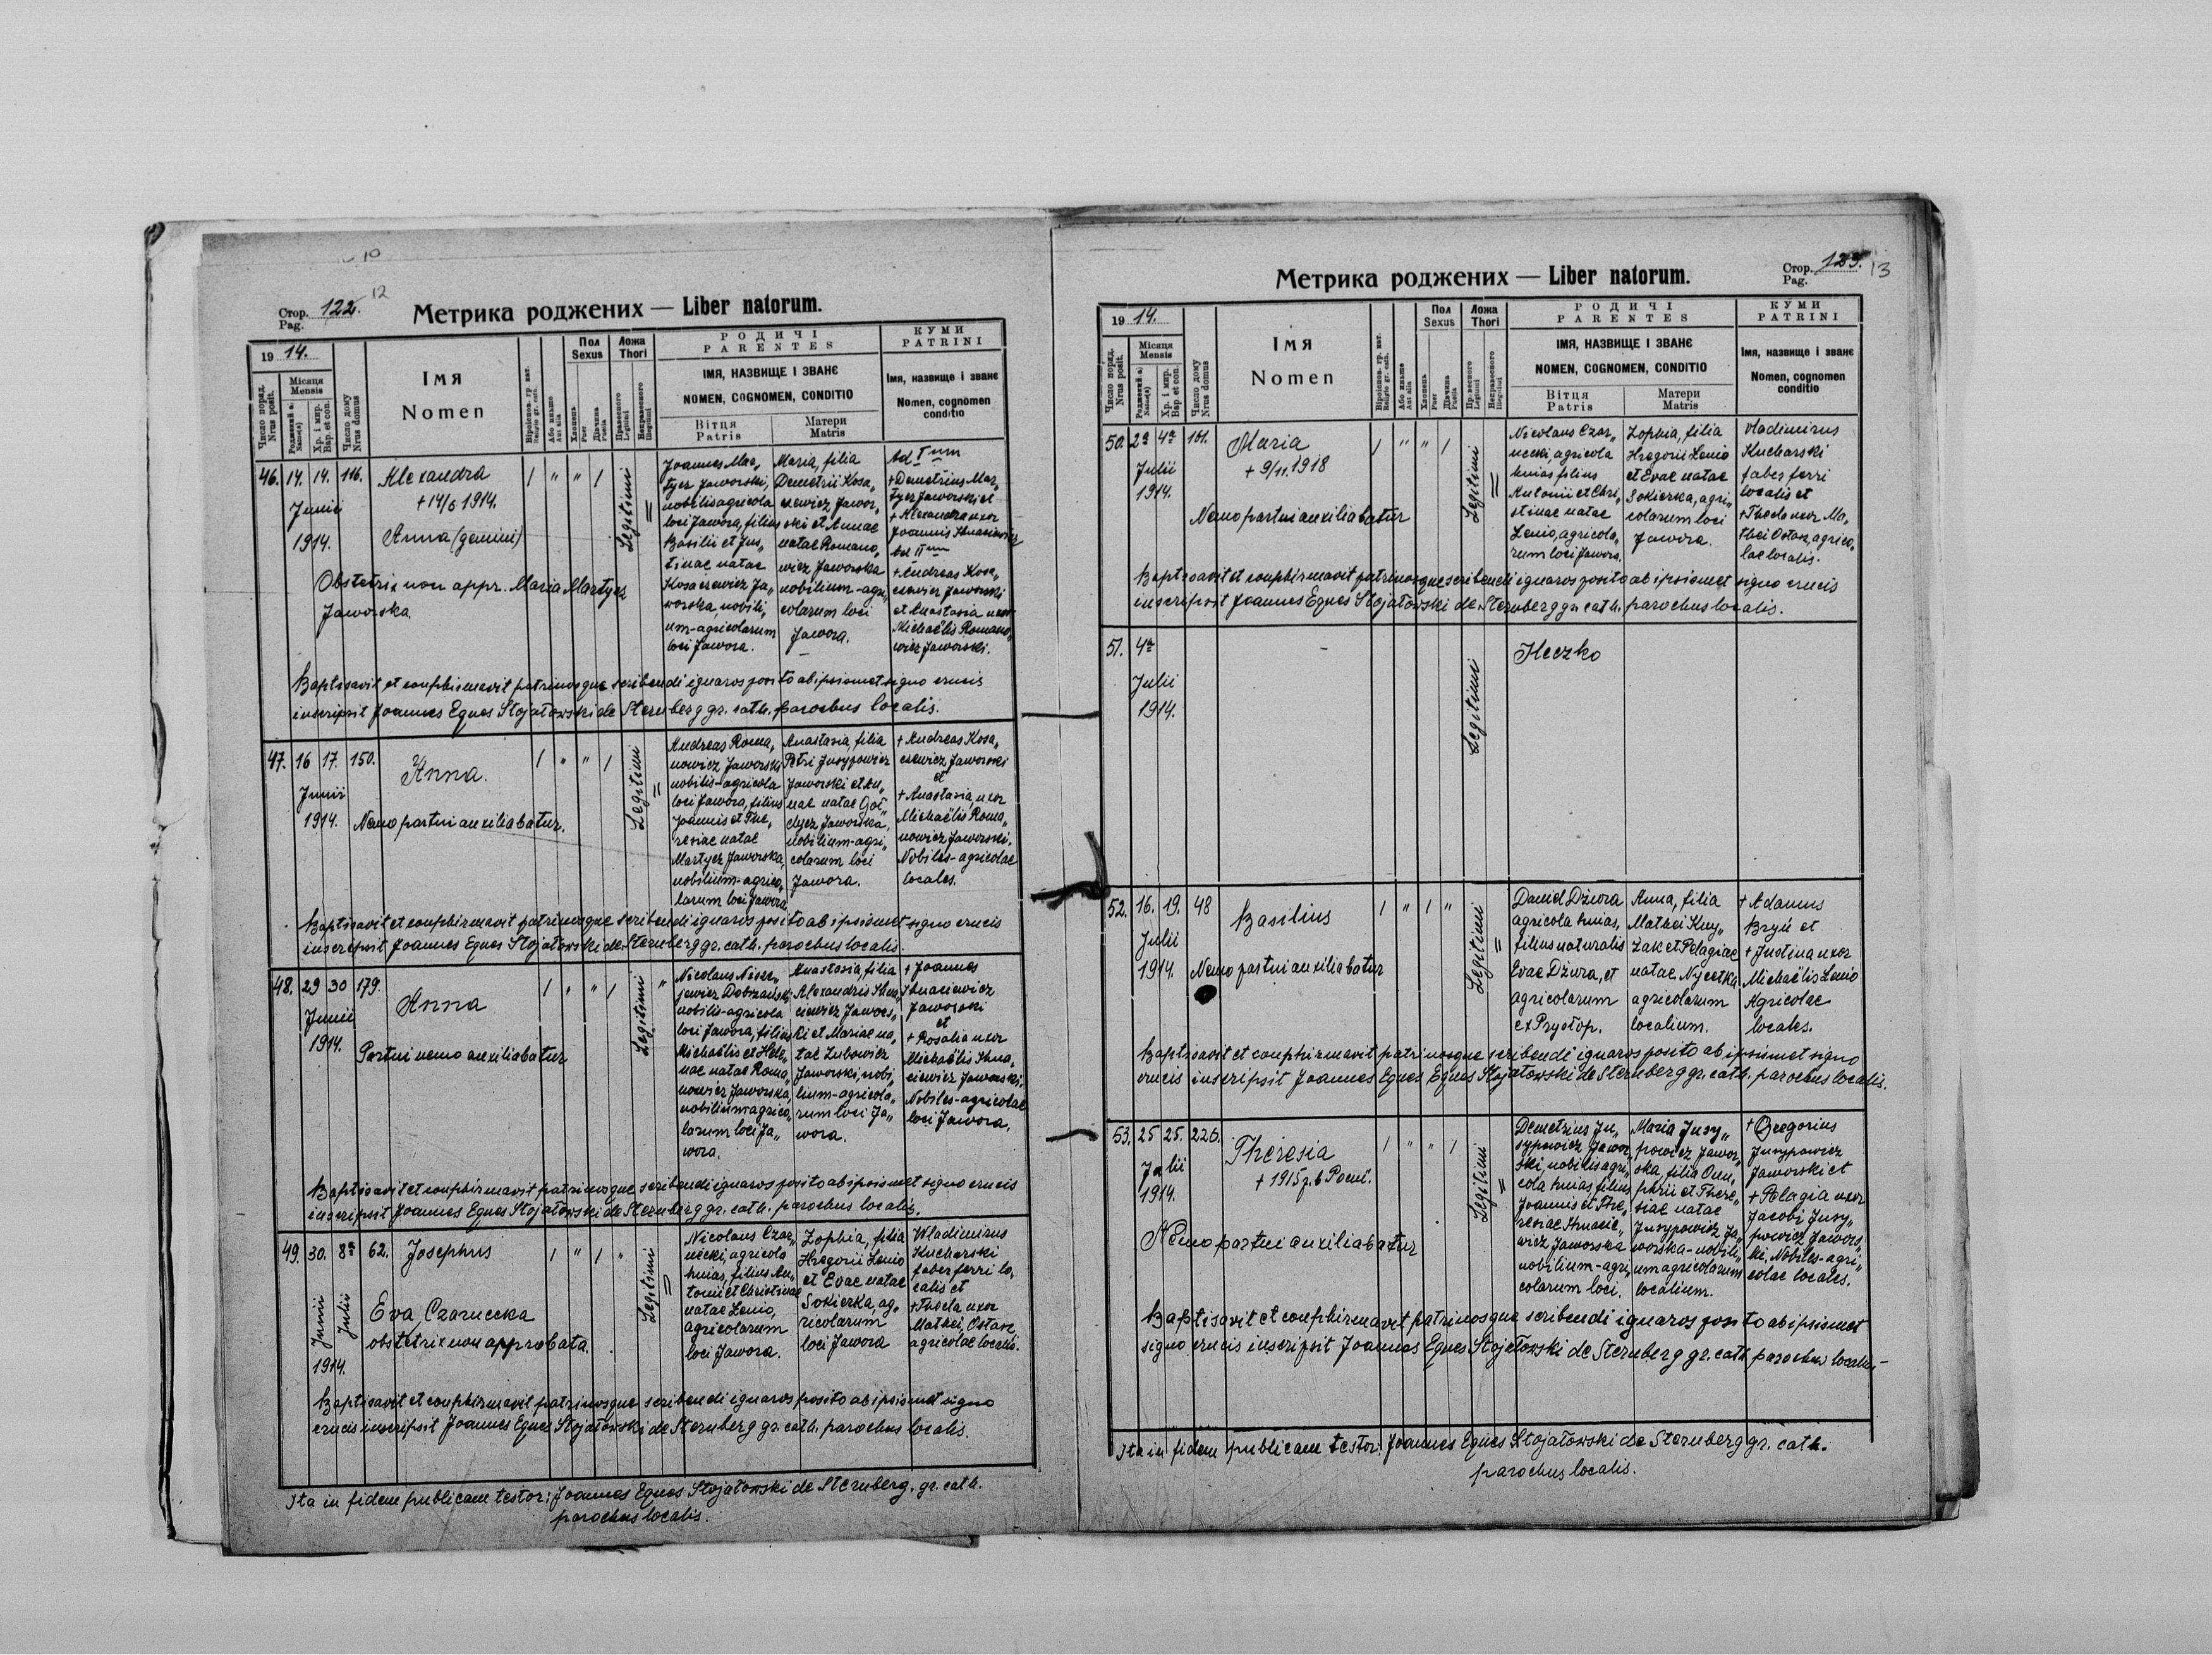 10
12
Стор. Pag. 122.
Метрика роджених — Liber natorum.
19 14.
Число поряд. Nrus posit.
Місяця Mensis
Хр. і мир. Bap. et con.
Число дому Nrus domus
ІМЯ
Nomen
Віроіспов. гр. кат. Religio gr. cath.
Або иньше Aut alia
Пол Sexus
Хлопець Puer
Дівчина Puella
Ложа Thori
Правесного Legitimi
Неправесного Illegitimi
РОДИЧІ
PARENTES
ІМЯ, НАЗВИЩЕ І ЗВАНЄ
NOMEN, COGNOMEN, CONDITIO
Вітця Patris
Матери Matris
КУМИ
PATRINI
Імя, назвище і званє
Nomen, cognomen conditio
46. 14. 14. 116.
Junii
1914.
Alexandra
+ 14/6 1914.
Anna (gemini)
Obstetrix non appr. Maria Martycz
Jaworska.
1 " " 1
Legitimi
Joannes Mar„
tycz Jaworski,
nobilis agricola
loci Jawora, filius
Basilii et Jus„
tinae natae
Kosacewicz Ja„
worska nobili„
um-agricolarum
loci Jawora.
Maria, filia
Demetrii Kosa„
cewicz Jawor„
ski et Annae
natae Romano„
wicz Jaworska
nobilium-agri„
colarum loci
Jawora.
Ad I um
+ Demetrius Mar„
tycz Jaworski et
+ Alexandra uxor
Joannis Ihnaciewicz
Ad II um
+ Andreas Kosa„
cewicz Jaworski
et Anastasia uxor
Michaëlis Romano„
wicz Jaworski.
Baptisavit et conphirmavit patrinosque scribendi ignaros posito ab ipsismet signo crucis
inscripsit Joannes Eques Stojałowski de Sternberg gr. cath. parochus localis.
47. 16 17. 150.
Junii
1914.
Anna.
Nemo partui auxiliabatur.
1 " " 1
Legitimi
Andreas Roma„
nowicz Jaworski
nobilis-agricola
loci Jawora, filius
Joannis et The„
resiae natae
Martycz Jaworska,
nobilium-agrico„
larum loci Jawora
Anastasia, filia
Petri Jusypowicz
Jaworski et An„
nae natae
Jaworska,
nobilium-agri„
colarum loci
Jawora.
+ Andreas Kosa„
cewicz Jaworski
et
+ Anastasia, uxor
Michaëlis Roma„
nowicz Jaworski.
Nobiles-agricolae
locales.
Baptisavit et conphirmavit patrinosque scribendi ignaris posito ab ipsismet signo crucis
inscripsit Joannes Eques Stojałowski de Sternberg gr. cath. parochus localis.
48. 29 30 179.
Junii
1914.
Anna
Partui nemo auxiliabatur
1 " " 1
Legitimi "
Nicolaus
Dobrzański,
nobilis-agricola
loci Jawora, filius
Michaëlis et Hele„
nae natae Roma„
nowicz Jaworska,
nobilium agrico„
larum loci Ja„
wora.
Anastasia, filia
Alexandris Ihna„
ciewicz Jawors„
ki et Mariae na„
tae Lubowicz
Jaworski, nobi„
lium-agricola„
rum loci Ja„
wora.
+ Joannes
Ihnaciewicz
Jaworski
et
+ Rosalia uxor
Michaëlis Ihna„
ciewicz Jaworski.
Nobiles-agricolae
loci Jawora.
Baptisavit et conphirmavit patrinosque scribendi ignaros posito ab ipsismet signo crucis
inscripsit Joannes Eques Stojałowski de Sternberg gr. cath. parochus localis.
49. 30. 8a 62.
Junii Julii
1914.
Josephus
Eva Czarnecka
obstetrix non approbata.
1 " 1 "
Legitimi
Nicolaus Czar„
necki, agricola
huias, filius An„
tonii et Christinae
natae Lenio,
agricolarum
loci Jawora.
Zophia, filia
Hregorii Lenio
et Evae natae
Sokierka, ag„
ricolarum
loci Jawora
Wladimirus
Kucharski
faber ferri lo„
calis et
+ Thecla uxor
Mathei, Ostasz,
agricolae localis.
Baptisavit et conphirmavit patrinosque scribendi ignaros posito ab ipsismet signo
crucis inscripsit Joannes Eques Stojałowski de Sternberg gr. cath. parochus localis.
Ita in fidem publicam testor: Joannes Eques Stojałowski de Sternberg. gr. cath.
parochus localis.
Стор. Pag. 123.
13
Метрика роджених — Liber natorum.
19 14.
Число поряд. Nrus posit.
Місяця Mensis
Хр. і мир. Bap. et con.
Число дому Nrus domus
ІМЯ
Nomen
Віроіспов. гр. кат. Religio gr. cath.
Або иньше Aut alia
Пол Sexus
Хлопець Puer
Дівчина Puella
Ложа Thori
Правесного Legitimi
Неправесного Illegitimi
РОДИЧІ
PARENTES
ІМЯ, НАЗВИЩЕ І ЗВАНЄ
NOMEN, COGNOMEN, CONDITIO
Вітця Patris
Матери Matris
КУМИ
PATRINI
Імя, назвище і званє
Nomen, cognomen conditio
50. 2a 4a 161.
Julii
1914.
Maria
+ 9/11. 1918
Nemo partui auxiliabatur
1 " " 1
Legitimi
Nicolaus Czar„
necki, agricola
huias filius
Antonii et Chri„
stinae natae
Lenio, agricola„
rum loci Jawora.
Zophia, filia
Hregorii Lenio
et Evae natae
Sokierka, agri„
colarum loci
Jawora.
Vladimirus
Kucharski
faber ferri
localis et
+ Thecla uxor Ma„
thei Ostasz, agrico„
lae localis.
Baptisavit et conphirmavit patrinosque scribendi ignaros posito ab ipsismet signo crucis
inscripsit Joannes Eques Stojałowski de Sternberg gr. cath. parochus localis.
51. 4a
Julii
1914.
Legitimi
Heczko
52. 16. 19. 48
Julii
1914.
Basilius
Nemo partui auxiliabatur
1 " 1 "
Legitimi
Daniel Dziura
agricola huias,
filius naturalis
Evae Dziura, et
agricolarum
ex Przysłop.
Anna, filia
Mathei Kuy„
żak et Pelagiae
natae Nycetka
agricolarum
localium.
+ Adamus
Bryń et
+ Justina uxor
Michaëlis Lenio
Agricolae
locales.
Baptisavit et conphirmavit patrinosque scribendi ignaros posito ab ipsismet signo
crucis inscripsit Joannes Eques Eques Stojałowski de Sternberg gr. cath. parochus localis.
53. 25 25. 226.
Julii
1914.
Theresia
+ 1915
Nemo partui auxiliabatur
1 " " 1
Legitimi
Demetrius Ju„
sypowicz Jawor„
ski, nobilis agri„
cola huias, filius
Joannis et The„
resiae Ihnacie„
wicz Jaworska
nobilium-agri„
colarum loci.
Maria Jusy„
powicz Jawor„
ska, filia Onu„
phrii et There„
siae natae
Jusypowicz Ja„
worska-nobili„
um agricolarum
localium.
+ Gregorius
Jusypowicz
Jaworski et
+ Pelagia uxor
Jacobi Jusy„
powicz Jawors„
ki. Nobiles-agri„
colae locales.
Baptisavit et conphirmavit patrinosque scribendi ignaros posito ab ipsismet
signo crucis inscripsit Joannes Eques Stojałowski de Sternberg gr. cath parochus localis-
Ita in fidem publicam testor: Joannes Eques Stojałowski de Sternberg gr. cath.
parochus localis.